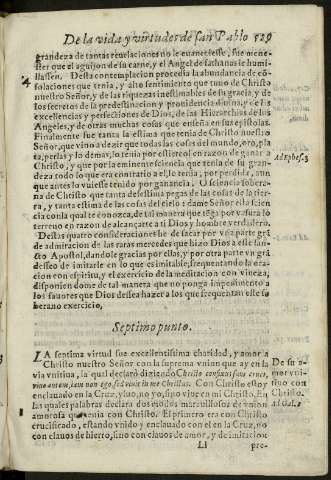 De la vida y virtudes de san Pablo 529
grandeza de tantas reuelaciones no le euaneciesse, fue menes-
ter que el aguijon de su carne, y el Angel de sathanas le humi-
llassen. Desta contemplacion procedia la abundancia de cõ-
4
solaciones que tenia, y alto sentimiento que tuuo de Christo
nuestro Señor, y de las riquezas inestimables de su gracia, y de
los secretos de la predestinacion y prouidencia diuina, y de las
excellencias y perfecciones de Dios, de las Hierarchias de los
Angeles, y de otras muchas cosas que enseña en sus epistolas.
Finalmente fue tanta la estima que tenia de Christo nuestro
Señor, que vino a dezir que todas las cosas del mundo, oro, pla
ta, perlas, y lo demas, lo tenia por estiercol en razon de ganar a
Christo, y que por la eminente sciencia que tenia de su gran-
deza todo lo que era contrario a el, lo tenia, por perdida, aun
que antes lo vuiesse tenido por ganancia. O sciencia sobera-
na de Christo que tanta desestima pegas de las cosas de la tie-
rra, y tanta estima de las cosas del cielo: dame Señor esta scien
cia con la qual te conozca, de tal manera que tẽga por vasura lo
terreno en razon de alcançarte a ti Dios y hombre verdadero.
Destas quatro consideraciones he de sacar por vna parte grã
de admiracion de las raras mercedes que hizo Dios a este san-
cto Apostol, dandole gracias por ellas, y por otra parte vn grã
desseo de imitarle en lo que es imitable, frequentando la ora-
cion con espiritu, y el exercicio de la meditacion con viueza,
disponiendome de tal manera que no ponga impedimento a
los fauores que Dios dessea hazer a los que frequentan este so
berano exercicio.
Septimo punto.
LA septima virtud fue excellentissima charidad, y amor a
Christo nuestro Señor con la suprema vnion que ay en la
via vnitiua, la qual declarò diziendo Christo confixus sum cruci,
viuo autem, iam non ego, sed viuit in me Christus. Con Christo estoy
enclauado en la Cruz, viuo, no yo, sino viue en mi Christo. En
las quales palabras declara dos modos marauillosos de vnion
amorosa que tenia con Christo. El primero era con Christo
crucificado, estando vnido y enclauado con el en la Cruz, no
con clauos de hierro, sino con clauos de amor, y de imitacion
Ll
pre-
Ad Ephes. 3
De su a-
mor y vni-
tiuo con
Christo.
Ad Gal. 2